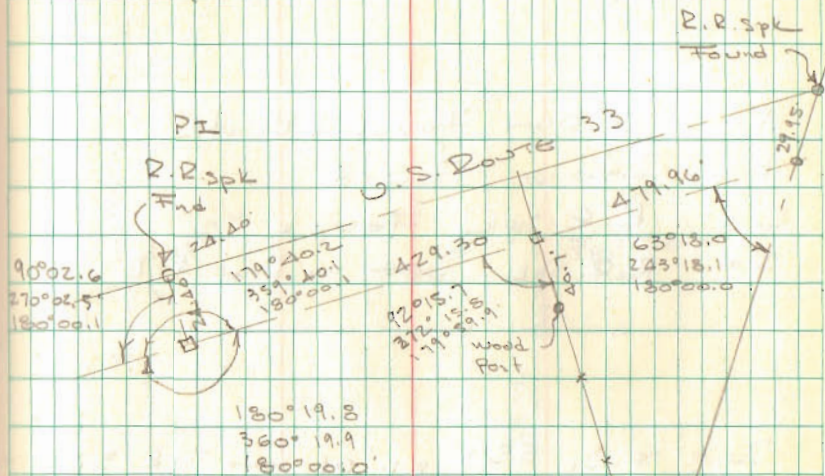 R.R. Spk
Found
PI
R.R. Spk
Fnd
U.S. Route 33
29.15
24.40
479.96'
90°02.6
270°02.5
180°00.1
179°40.2
359°40.1
180°00.1
429.30
63°18.0
243°18.1
180°00.0
92°15.7
272°15.8
179°59.9
wood
Post
180°19.8
360°19.9
180°00.0